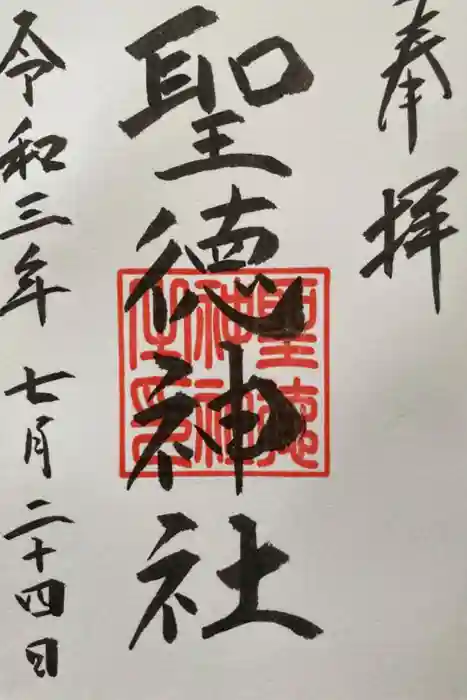 奉拝
聖徳神社
聖徳
神社
令和三年七月二十四日